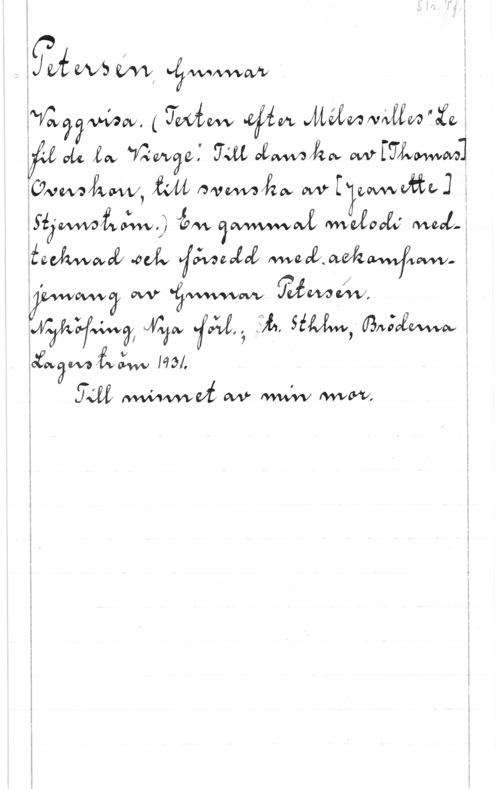 Str. Tf.
Petersén, Gunnar
Vaggvisa. (Texten efter Mélesvilles "Le
fil de la Vierge". Till danska av [Thomas]
Overskou, till svenska av [Jeanette]
Stjernström.) En gammal melodi ned-
tecknad och försedd med ackompan-
jemang av Gunnar Petersén.
Nyköping, Nya förl.; tr. Sthlm, Bröderna
Lagerström 1931.
Till minnet av min mor.